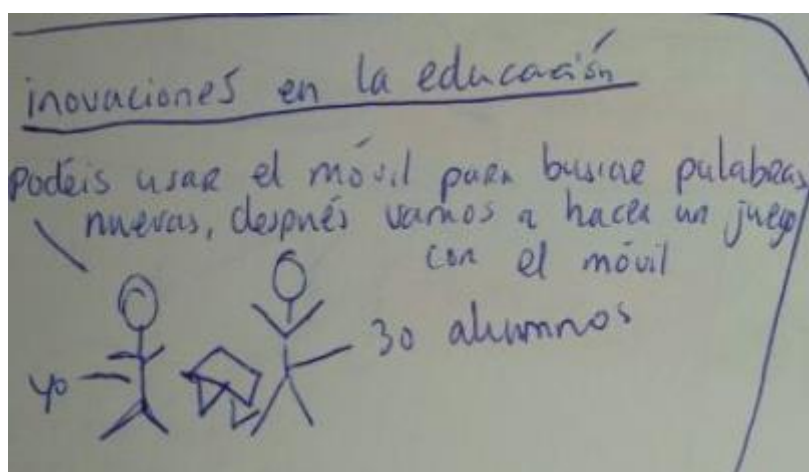 inovaciones en la educación
podéis usar el móvil para buscar palabras
nuevas, después vamos a hacer un juego
con el móvil
30 alumnos
yo